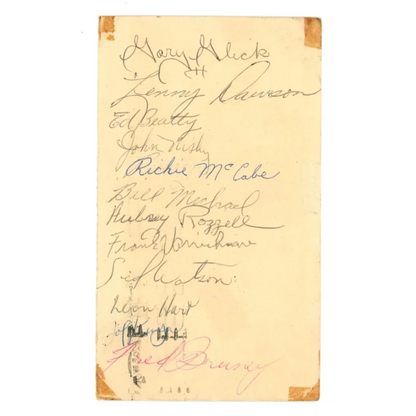 Gary Glick
Lenny Dawson
Ed Beatty
John Nisby
Richie McCabe
Bill Michael
Aubrey Rozzell
Frank Varrichione
Sid Watson
Leon Hart
Fred Bruney